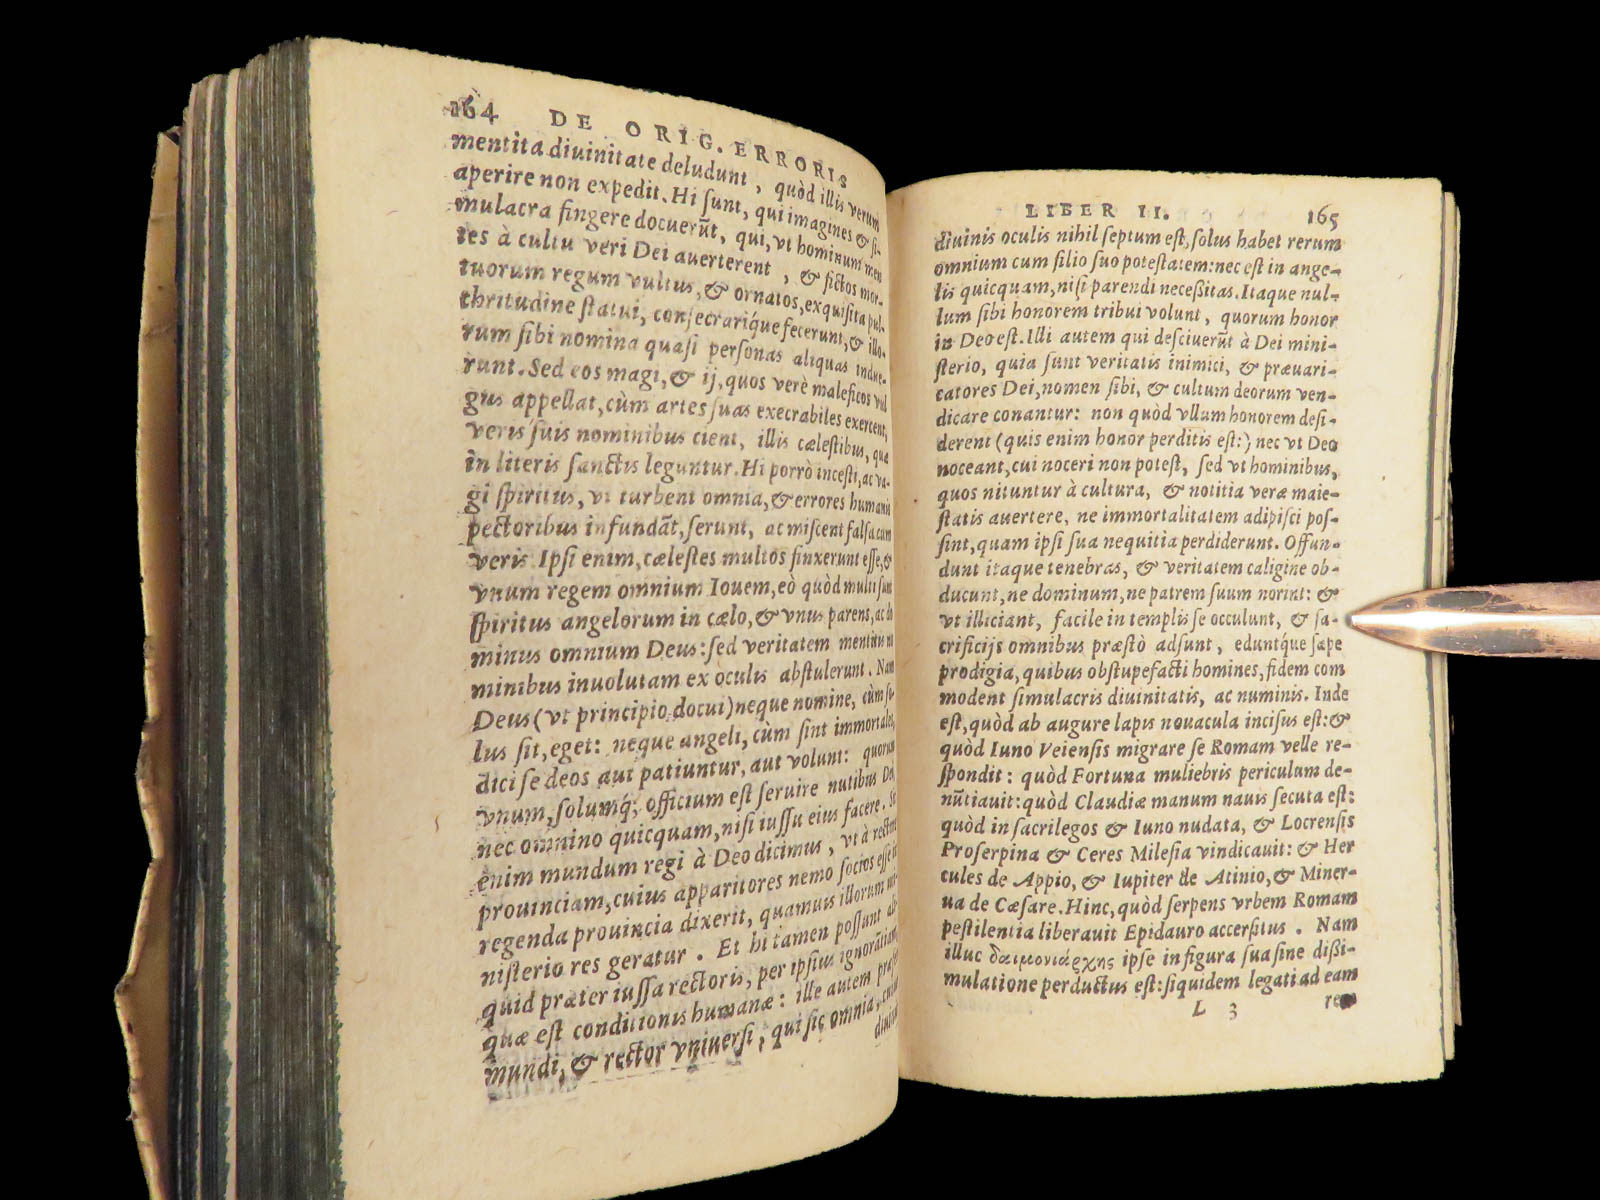 164 DE ORIG. ERRORIS
mentita diuinitate deludunt, quòd illis verum
aperire non expedit. Hi sunt, qui imagines & si-
mulacra fingere docuerũt, qui, vt hominum men
tes à cultu veri Dei auerterent, & fictos mor-
tuorum regum vultus, & ornatos, exquisita pul-
chritudine statui, consecrariq́ue fecerunt, & illo-
rum sibi nomina quasi personas aliquas indue-
runt. Sed eos magi, & ij, quos verè maleficos vul
gus appellat, cùm artes suas execrabiles exercent,
veris suis nominibus cient, illis cælestibus, quæ
in literis sanctis leguntur. Hi porrò incesti, ac va-
gi spiritus, vt turbent omnia, & errores humanis
pectoribus infundãt, serunt, ac miscent falsa cum
veris. Ipsi enim, cælestes multos finxerunt esse, &
vnum regem omnium Iouem, eò quòd multi sunt
spiritus angelorum in cælo, & vnus parens, ac do
minus omnium Deus: sed veritatem mentitis no
minibus inuolutam ex oculis abstulerunt. Nam
Deus (vt principio docui) neque nomine, cùm so-
lus sit, eget: neque angeli, cùm sint immortales,
dici se deos aut patiuntur, aut volunt: quorum
vnum, solumq́; officium est seruire nutibus Dei,
nec omnino quicquam, nisi iussu eius facere. Sic
enim mundum regi à Deo dicimus, vt à rectore
prouinciam, cuius apparitores nemo socios esse in
regenda prouincia dixerit, quamuis illorum mi-
nisterio res geratur. Et hi tamen possunt ali-
quid præter iussa rectoris, per ipsius ignorãtiam,
quæ est conditionis humanæ: ille autem præses
mundi, & rector vniuersi, qui sic omnia, cuius
diuinis
LIBER II. 165
diuinis oculis nihil septum est, solus habet rerum
omnium cum filio suo potestatem: nec est in ange-
lis quicquam, nisi parendi necessitas. Itaque nul-
lum sibi honorem tribui volunt, quorum honor
in Deo est. Illi autem qui desciuerũt à Dei mini-
sterio, quia sunt veritatis inimici, & præuari-
catores Dei, nomen sibi, & cultum deorum ven-
dicare conantur: non quòd vllum honorem desi-
derent (quis enim honor perditis est:) nec vt Deo
noceant, cui noceri non potest, sed vt hominibus,
quos nituntur à cultura, & notitia veræ maie-
statis auertere, ne immortalitatem adipisci pos-
sint, quam ipsi sua nequitia perdiderunt. Offun-
dunt itaque tenebras, & veritatem caligine ob-
ducunt, ne dominum, ne patrem suum norint: &
vt illiciant, facile in templis se occulunt, & sa-
crificijs omnibus præstò adsunt, eduntq́ue sæpe
prodigia, quibus obstupefacti homines, fidem com
modent simulacris diuinitatis, ac numinis. Inde
est, quòd ab augure lapis nouacula incisus est: &
quòd Iuno Veiensis migrare se Romam velle re-
spondit: quòd Fortuna muliebris periculum de-
nũtiauit: quòd Claudiæ manum nauis secuta est:
quòd in sacrilegos & Iuno nudata, & Locrensis
Proserpina & Ceres Milesia vindicauit: & Her
cules de Appio, & Iupiter de Atinio, & Miner-
ua de Cæsare. Hinc, quòd serpens vrbem Romam
pestilentia liberauit Epidauro accersitus. Nam
illuc δαιμονιάρχης ipse in figura sua sine dissi-
mulatione perductus est: siquidem legati ad eam
L 3 rem